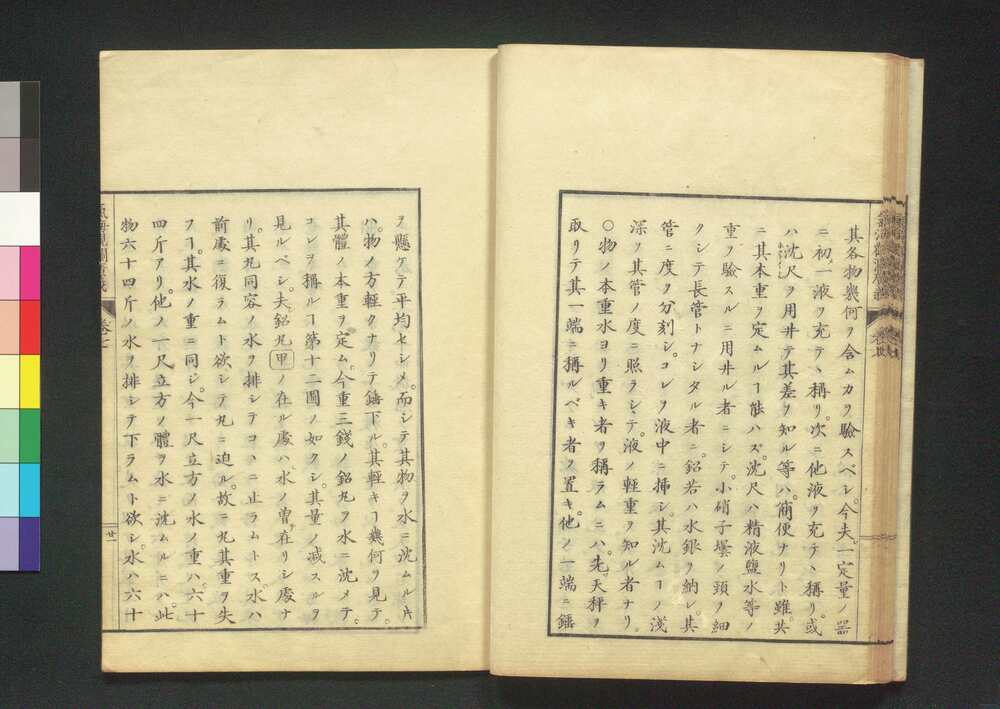 其各物幾何ヲ含ムカヲ驗スベシ。今夫一定量ノ器
ニ初一液ヲ充テヽ稱リ。次ニ他液ヲ充テヽ稱リ。或
ハ沈尺ヲ用井テ其差ヲ知ル等ハ。簡便ナリト雖。共
ニ其本重ヲ定ムルヿ能ハズ。沈尺ハ精液鹽水等ノ
重ヲ驗スルニ用井ル者ニシテ。小硝子壜ノ頸ヲ細
クシテ長管トナシタル者ニ。鉛若ハ水銀ヲ納レ。其
管ニ度ヲ分刻シ。コレヲ液中ニ揷シ。其沈ムヿノ淺
深ヲ其管ノ度ニ照ラシテ。液ノ輕重ヲ知ル者ナリ。
○物ノ本重水ヨリ重キ者ヲ稱ラムニハ。先天秤ヲ
取リテ其一端ニ稱ルベキ者ヲ置キ。他ノ一端ニ錘
ヲ懸ケテ平均セシメ。而シテ其物ヲ水ニ沈ムル片
ハ。物ノ方輕クナリテ錘下ル。其輕キヿ幾何ヲ見テ。
其體ノ本重ヲ定ム。今重三錢ノ鉛丸ヲ水ニ沈メテ。
コレヲ稱ルヿ第十二圖ノ如クシ。其量ノ減スルヲ
見ルベシ。夫鉛丸甲ノ在ル處ハ水ノ曽在リシ處ナ
リ。其丸同容ノ水ヲ排シテコヽニ止ラムトス。水ハ
前處ニ復ラムト欲シテ丸ニ迫ル。故ニ丸其重ヲ失
フヿ。其水ノ重ニ同シ。今一尺立方ノ水ノ重ハ。六十
四斤アリ。他ノ一尺立方ノ體ヲ水ニ沈ムルニハ。此
物六十四斤ノ水ヲ排シテ下ラムト欲シ。水ハ六十
卷七
廿一